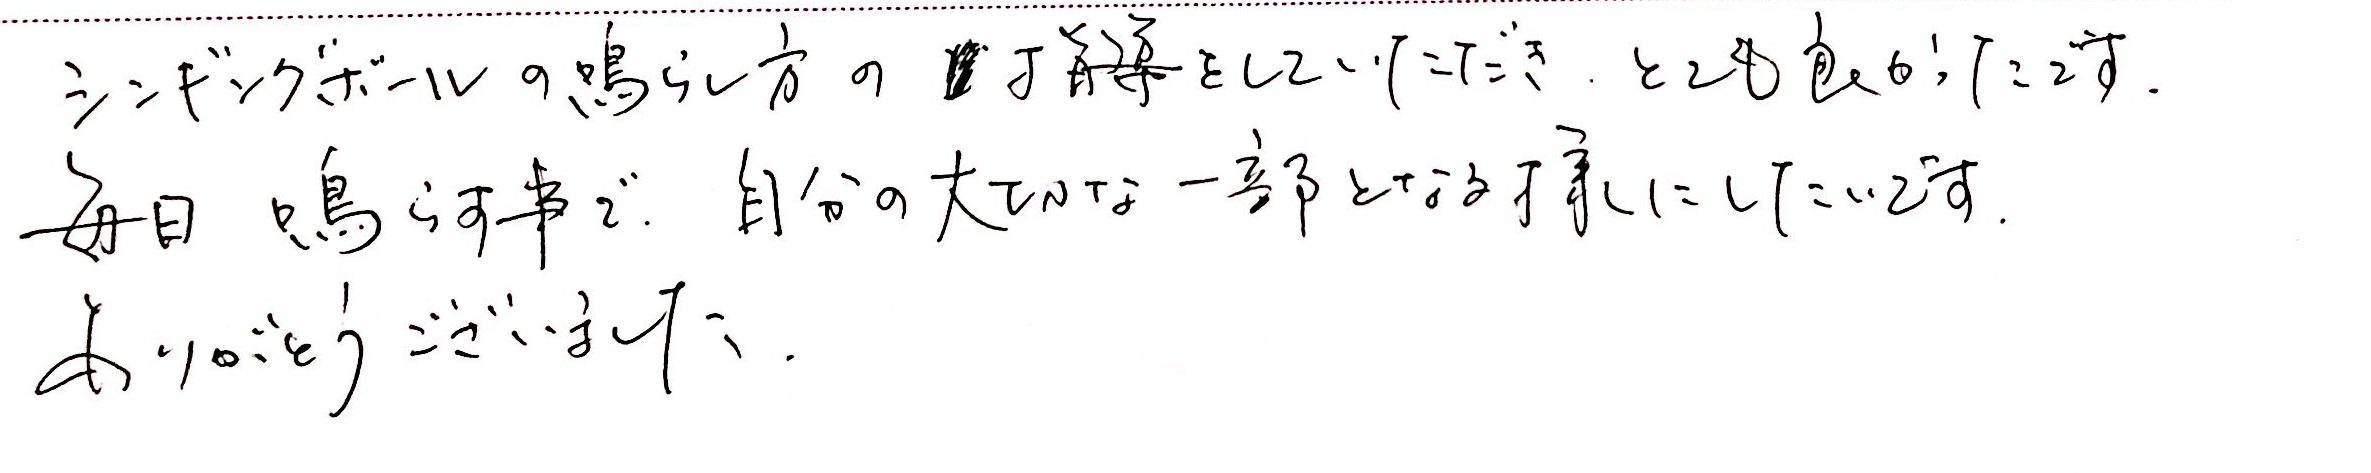 シンギングボールの鳴らし方の指導をしていただき、とても良かったです。
毎日鳴らす事で、自分の大切な一部となる様にしたいです。
ありがとうございました。